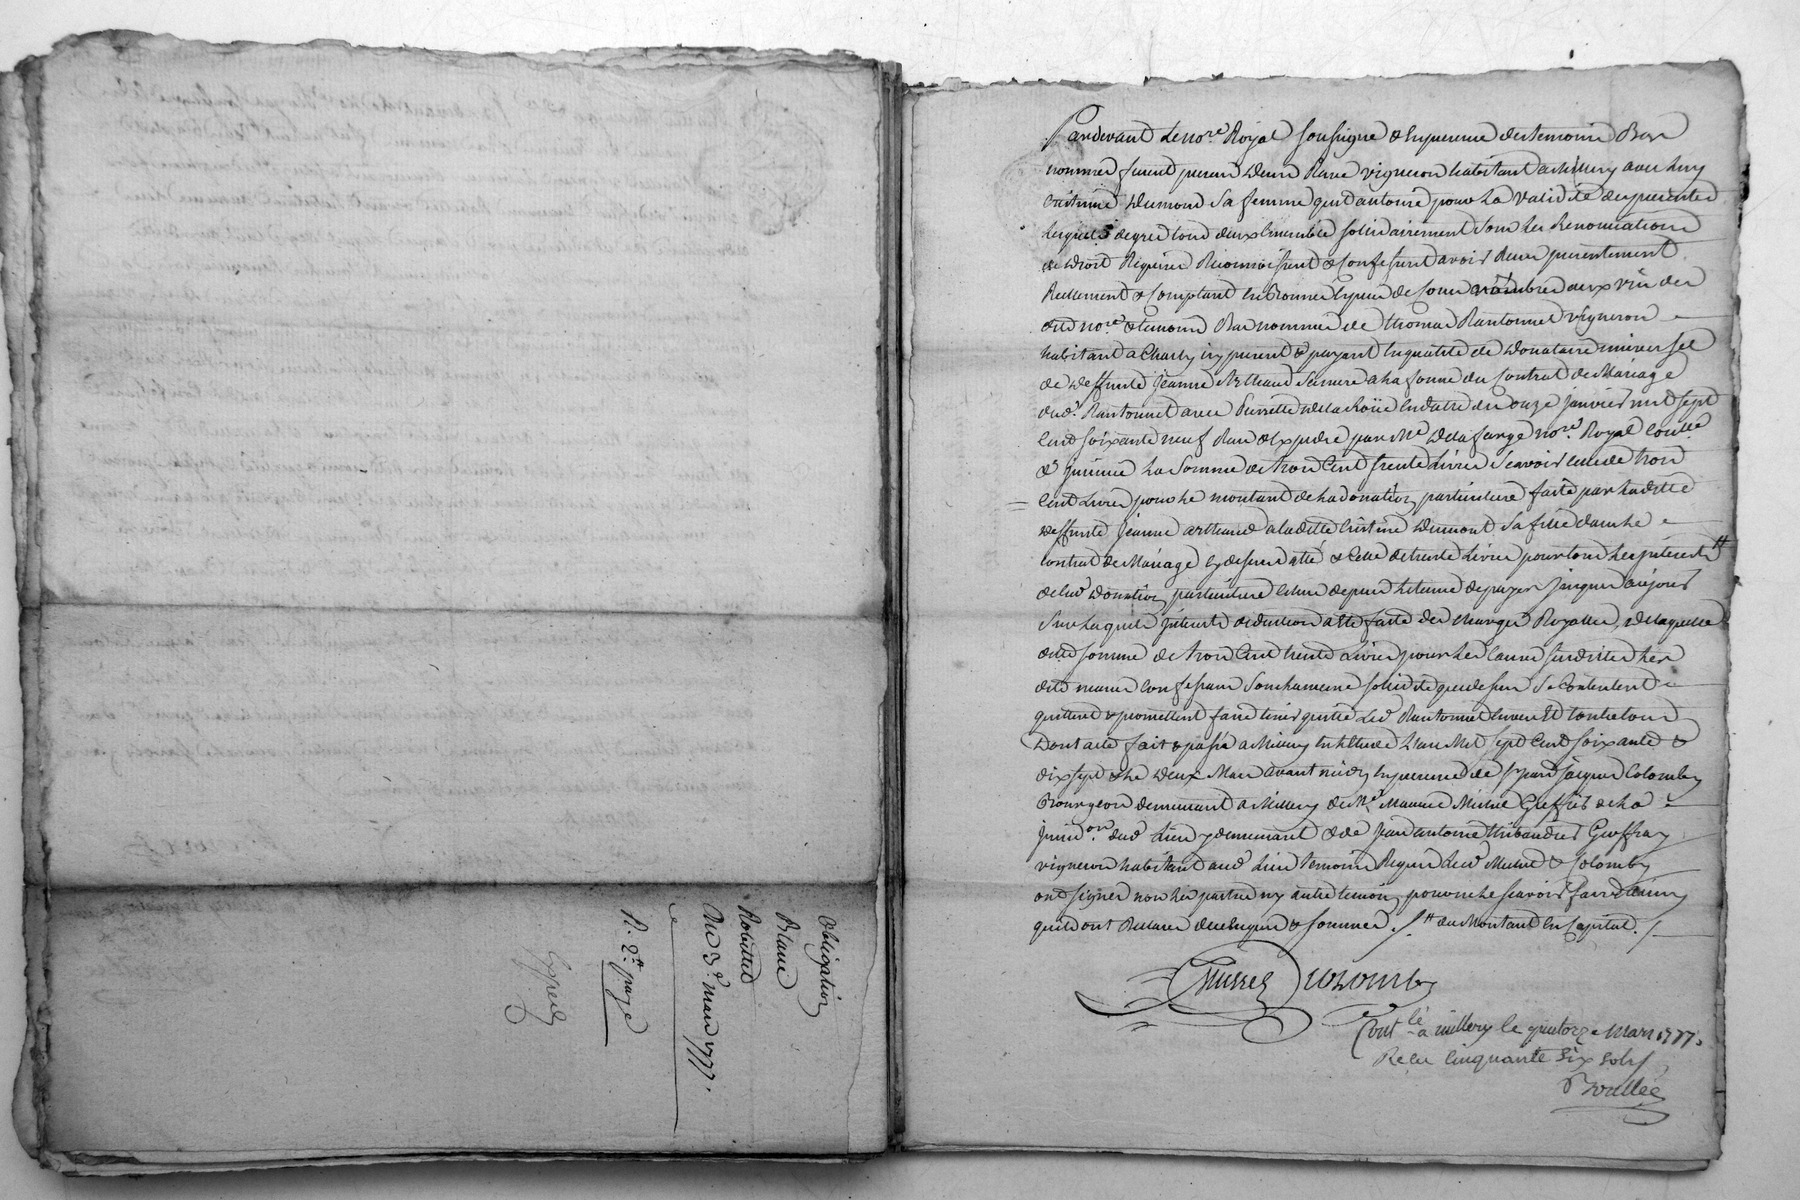 obligation
Blanc
Robittet
Du 3e mars 1777.
R. 2tt page
Expédié
Pardevant Le nore Royal Soussigné & En presence des temoins Bas
nommés furent presens Denis Rave vigneron habitant a Millery avec luy
Cristinne Dumond Sa femme quil autorise pour La validité des presentes
Lesquels de gred tous deux Ensemble solidairement Sous Les Renonciations
de Droit Requises Reconnoissent & Confessent avoir Reçu presentement
Reellement & Comptant En Bonnes Espece de Cours nombrée aux vüe des
dits nore & temoins Bas nommés de thomas Rantonnet vigneron
habitant a Charly icy present & payant En qualité de Donataire universel
de deffunte Jeanne Artheaud Sa mere a la forme du Contrat de Mariage
dud. Rantonnet avec Pierrette Delaroüe En datte du onze janvier mil sept
Cent soixante neuf Reçu & Expedié par Me Delafarge nore Royal Coulle
& quitancé La Somme de trois Cent trente Livres Sçavoir Celle de trois
Cent Livres pour Le montant de La donation particuliere faite par Ladite
deffunte Jeanne artheaud a Ladite Cristine Dumont Sa fille dans Le
Contrat de Mariage cy dessus datté & Celle de trente Livres pour tous Les interests tt
de lad. Donation particuliere Echue depuis Le terme de payer jusques aujour
Sur Laquele interests deduction a été faite des Charges Royalles, de Laquelle
dite somme de trois Cent trente Livres pour Les Causes susdites Les
dits mariés Confessans Sous La meme solidité que dessus Se Contentent
quittent & promettent faire tenir quitte Led. Rantonnet Envers Et Contre tous
Dont acte fait & passé a Millery En L'Etude L'an Mil sept Cent soixante &
dix sept & Le Deux Mars avant midy En presence de sr jean jacques Colomby
Bourgeois demeurant a Millery de Me Maurice Michel Greffier de La
jurisdon dud. Lieu y demeurant & de Jean antoine thibaudier Geoffray
vigneron habitant aud. Lieu temoins Requis Led. Michel & Colomby
ont signés non Les parties ny autre temoin pour ne Le sçavoir faire ainsy
quils ont Declarer de ce Enquis & sommés. /tt du Montant En Capital. /
Michel Colomby
Contlé a millery le quatorze mars 1777.
Reçu Cinquante six sols
Boullée